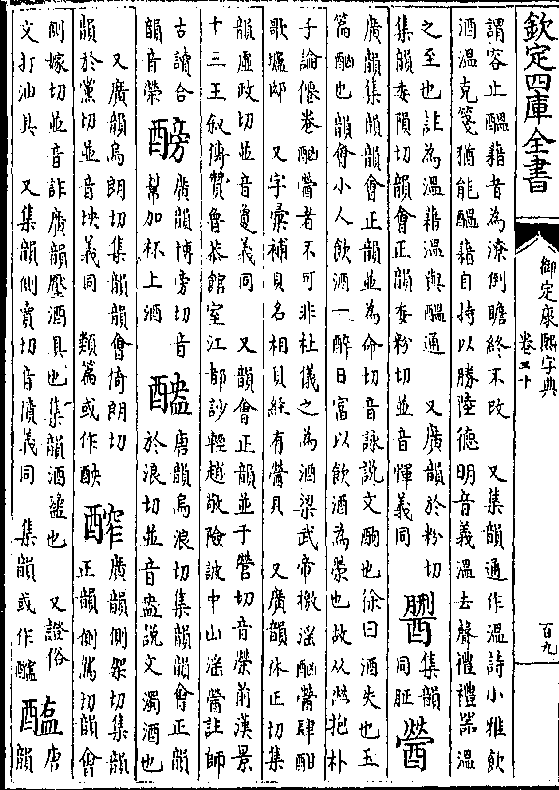 欽定四庫全書
御定康熙字典
卷三十
百九
謂容止醞藉者為潦倒瞻終不改 又集韻通作溫詩小雅飲
酒溫克箋猶能醞藉自持以勝陸德明音義溫去聲禮禮器溫
之至也註為溫藉溫與醞通 又廣韻於粉切
集韻委隕切韻會正韻委粉切並音惲義同
集韻
同
醟
廣韻集韻韻會正韻並為命切音詠說文酌也徐曰酒失也玉
篇酗也韻會小人飲酒一醉日富以飲酒為榮也故从抱朴
子論僊卷酗醟者不可非杜儀之為酒梁武帝檄淫酗醟肆酣
歌壚邸 又字彙補貝名相貝經有醟貝 又廣韻休正切集
韻虛政切並音夐義同 又韻會正韻並于營切音榮前漢景
十三王叙傳贊魯恭館室江都訬輕趙敬險詖中山淫醟註師
古讀合
韻音榮
𨢐
廣韻博旁切音
幫加杯上酒
醠
唐韻烏浪切集韻韻會正韻
於浪切並音盎說文濁酒也
又廣韻烏朗切集韻韻會倚朗切
韻於黨切並音坱義同 類篇或作
醡
廣韻側架切集韻
正韻側駕切韻會
側嫁切並音詐廣韻壓酒具也集韻酒盝也 又證俗
文打油具 又集韻側賣切音債義同 集韻或作
醢
唐
韻